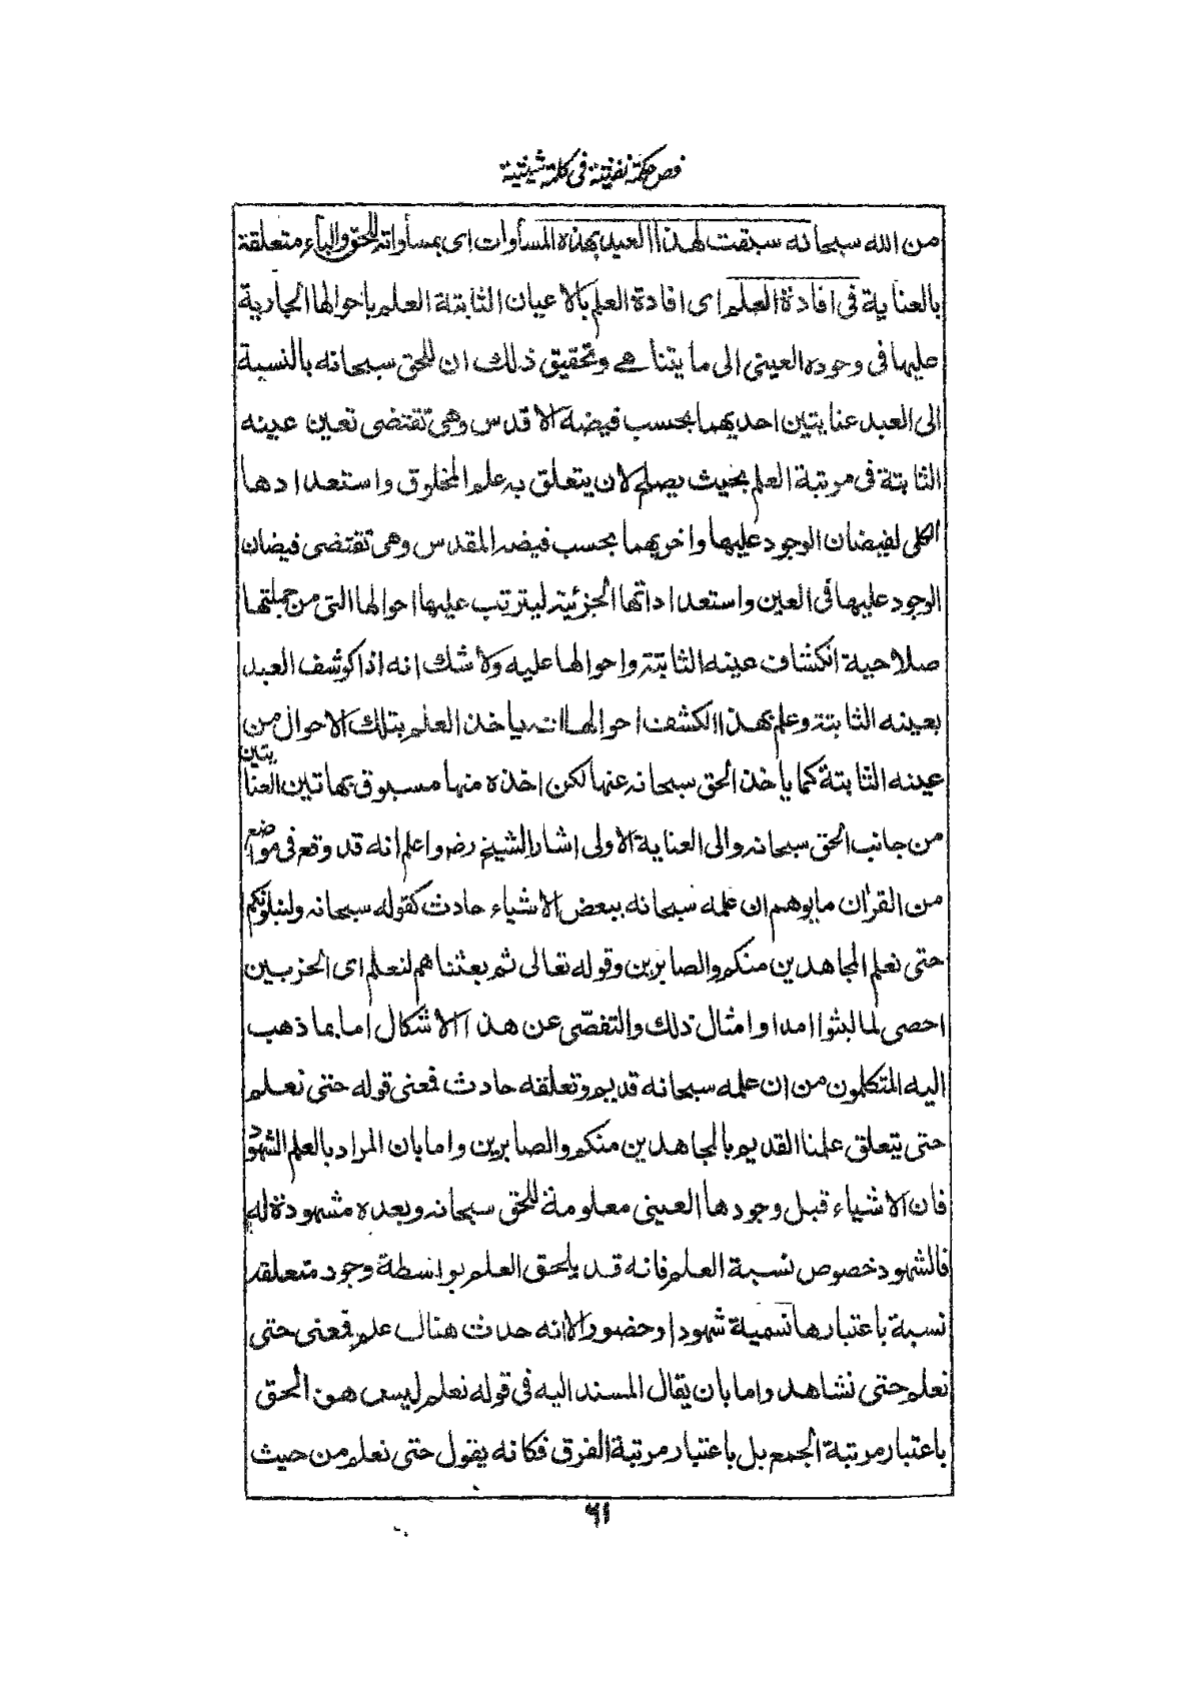 فص حكمة نفثية فى كلمة شيثية
من الله سبحانه سبقت لهذا العبد بهذه المسأوات اى بمسأواته للحق والباء متعلقة
بالعناية فى افادة العلم اى افادة العلم بالاعيان الثابتة العلم باحوالها الجارية
عليها فى وجوده العينى الى ما يتناهى وتحقيق ذلك ان للحق سبحانه بالنسبة
الى العبد عنايتين احديهما بحسب فيضه الاقدس وهى تقتضى تعين عينه
الثابتة فى مرتبة العلم بحيث يصلح لان يتعلق به علم المخلوق واستعدادها
الكلى لفيضان الوجود عليها واخريهما بحسب فيضه المقدس وهى تقتضى فيضان
الوجود عليها فى العين واستعداداتها الجزئية ليترتب عليها احوالها التى من جملتها
صلاحية انكشاف عينه الثابتة واحوالها عليه ولا شك انه اذا كوشف العبد
بعينه الثابتة وعلم بهذا الكشف احوالها انه ياخذ العلم بتلك الاحوال من
عينه الثابتة كما ياخذ الحق سبحانه عنها لكن اخذه منها مسبوق بهاتين العنايتين
من جانب الحق سبحانه والى العناية الاولى اشار الشيخ رضه واعلم انه قد وقع فى مواضع
من القرأن ما يوهم ان علمه سبحانه ببعض الاشياء حادث كقوله سبحانه ولنبلونكم
حتى نعلم المجاهدين منكم والصابرين وقوله تعالى ثم بعثناهم لنعلم اى الحزبين
احصى لما لبثوا امدا وامثال ذلك والتفصّى عن هذا الاشكال اما بما ذهب
اليه المتكلمون من ان علمه سبحانه قديم وتعلقه حادث فمعنى قوله حتى نعلم
حتى يتعلق علمنا القديم بالمجاهدين منكم والصابرين واما بان المراد بالعلم الشهود
فان الاشياء قبل وجودها العينى معلومة للحق سبحانه وبعده مشهودة له
فالشهود خصوص نسبة العلم فانه قد يلحق العلم بواسطة وجود متعلقه
نسبة باعتبارها تسميه شهودا وحضورا لا انه حدث هناك علم فمعنى حتى
نعلم حتى نشاهد واما بان يقال المسند اليه فى قوله نعلم ليس هو الحق
باعتبار مرتبة الجمع بل باعتبار مرتبة الفرق فكانه يقول حتى نعلم من حيث
٦١